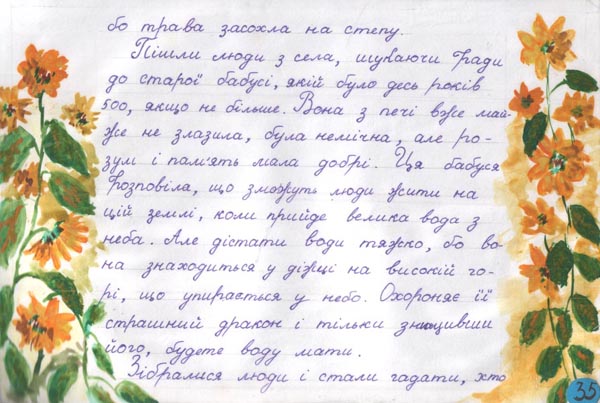 бо трава засохла на степу.
Пішли люди з села, шукаючи ради
до старої бабусі, якій було десь років
500, якщо не більше. Вона з печі вже май-
же не злазила, була немічна, але ро-
зум і пам'ять мала добрі. Ця бабуся
розповіла, що зможуть люди жити на
цій землі, коли прийде велика вода з
неба. Але дістати води тяжко, бо во-
на знаходиться у діжці на високій го-
рі, що упирається у небо. Охороняє її
страшний дракон і тільки знищивши
його, будете воду мати.
Зібралися люди і стали гадати, хто
35